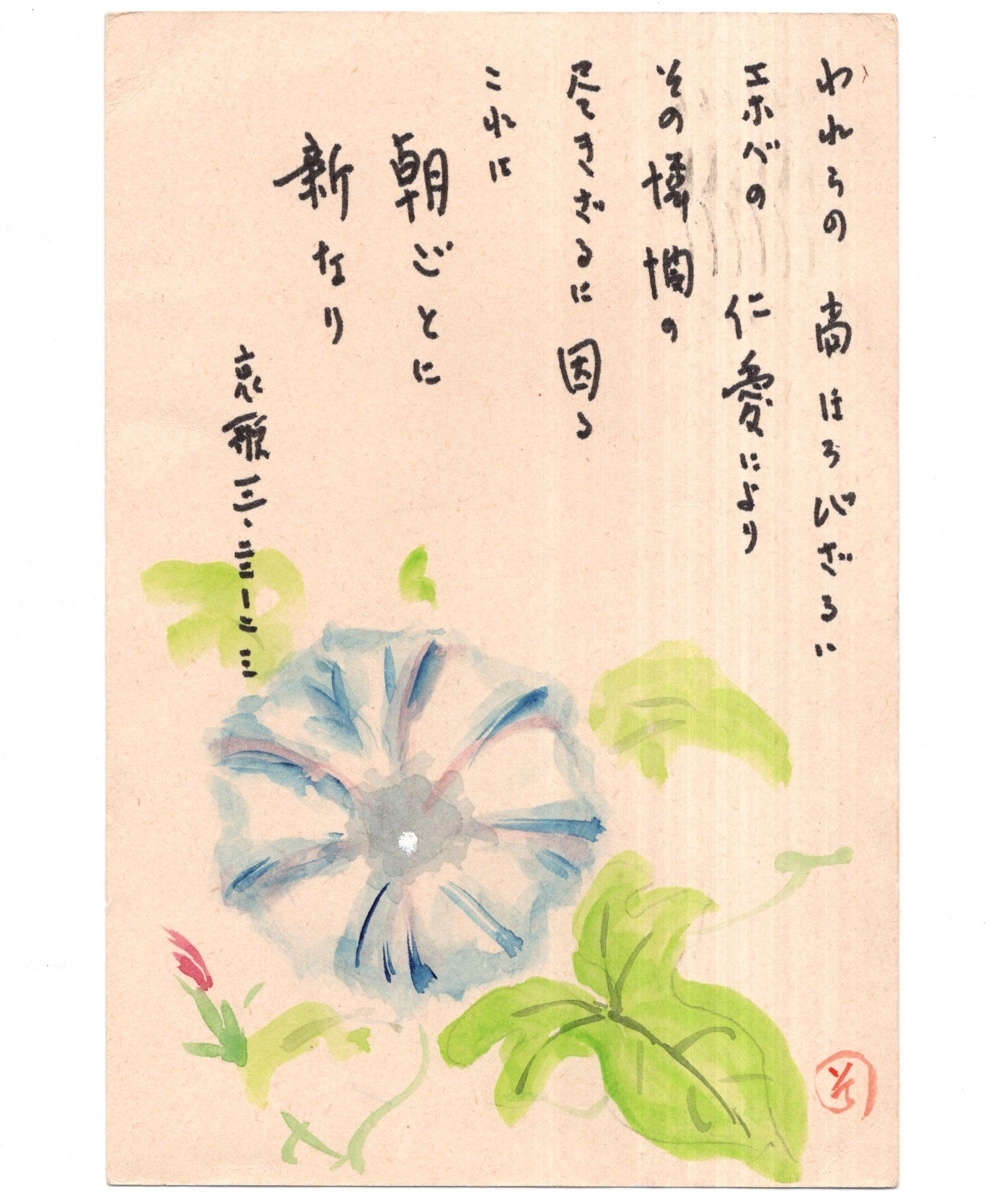 われらの 尚ほろびざるは
エホバの 仁愛により
その憐憫の
尽きざるに因る
これは
朝ごとに
新なり
哀歌三・二二ー二三
そ